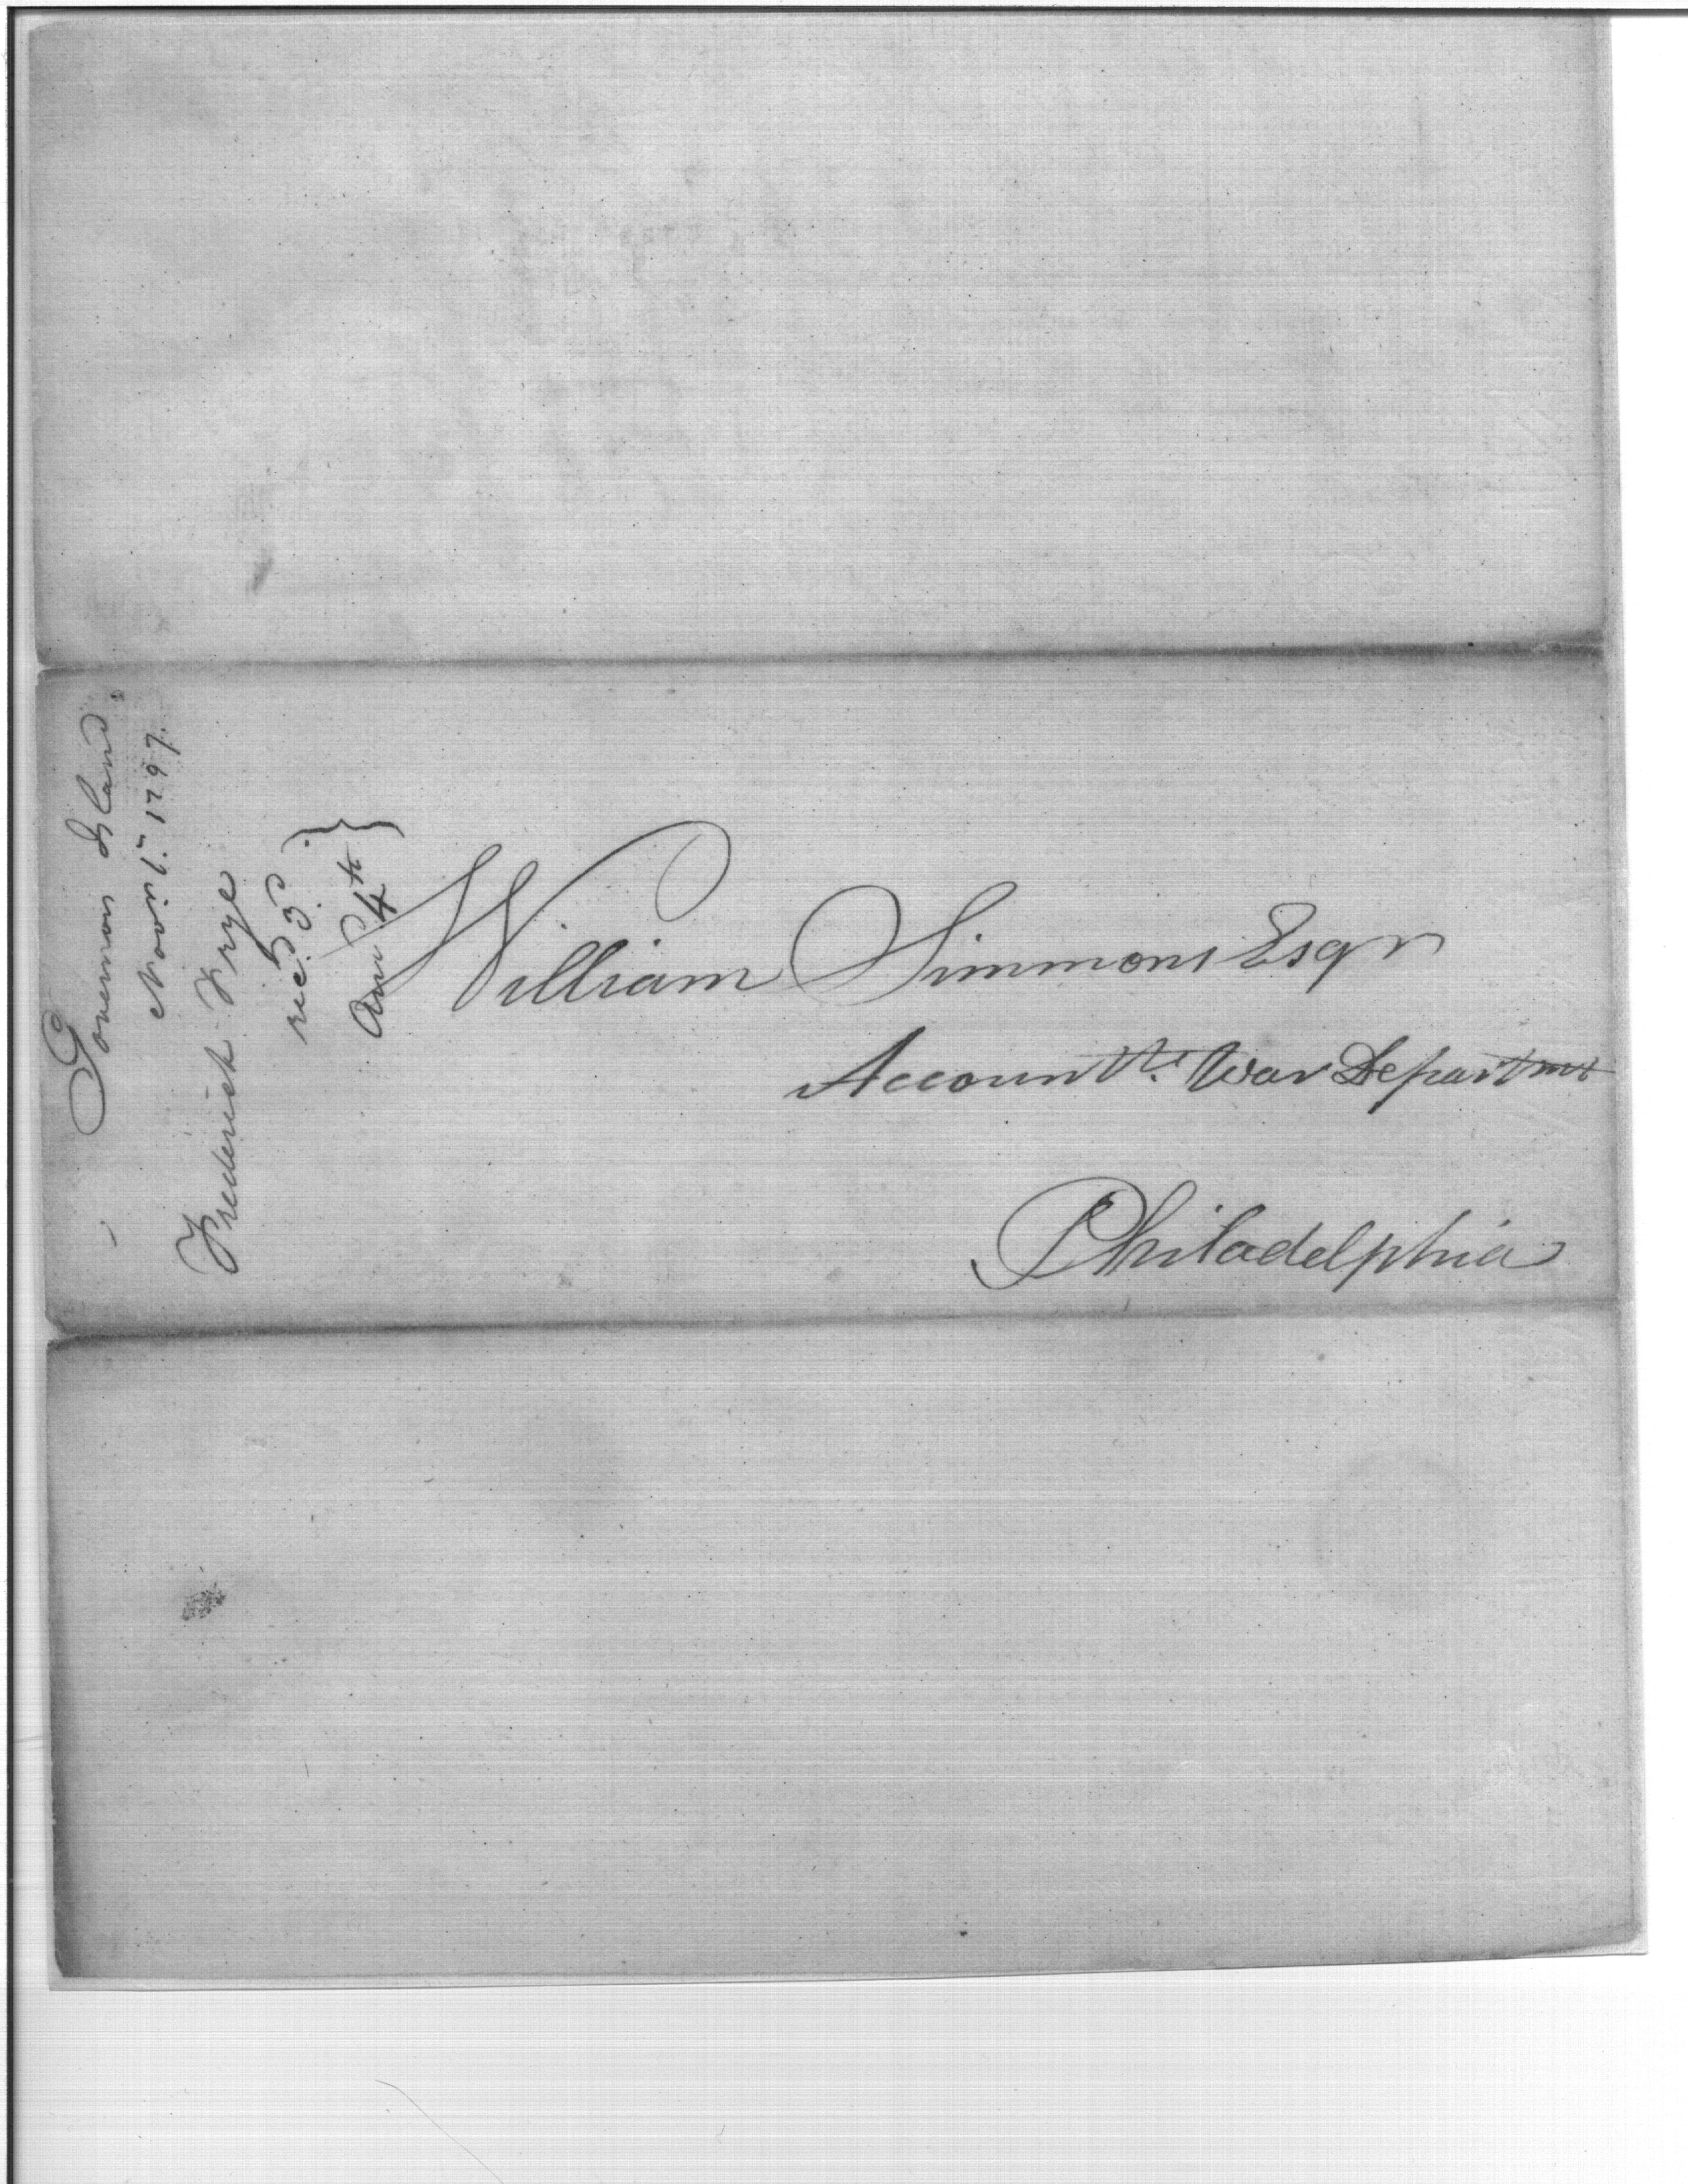 Governors Island
Novr. 1st. 1797.
Frederick Frye
recd. 3d. }
Ansd 4th }
William Simmons Esqr
Accountt. War Departmt
Philadelphia